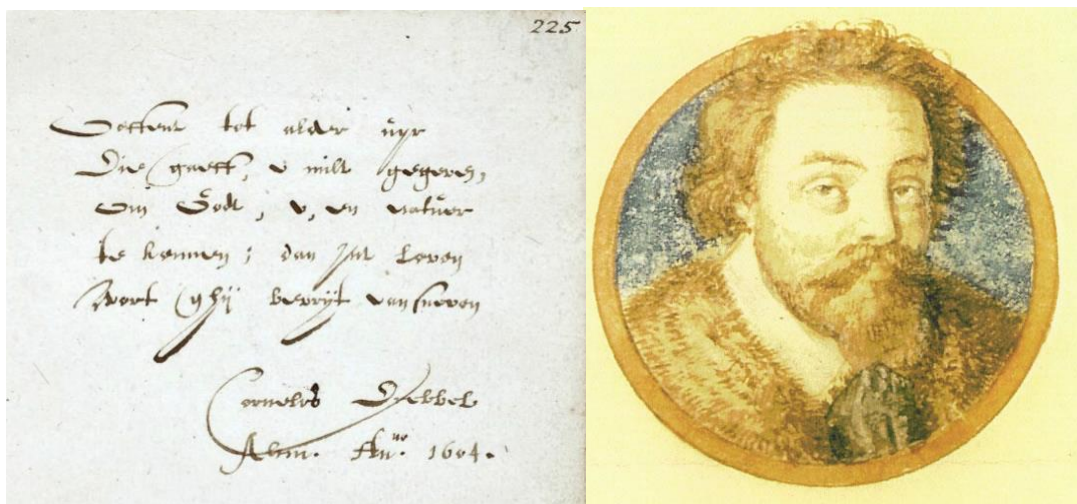 225
tot alder uyr
Die gaeft, u milt gegeven,
Om Godt, u, en natuer
te kennen; dan int leven
Wort ghij bevrijt van sneven
Cornelis Drebbel
Alcm. Anno. 1604.